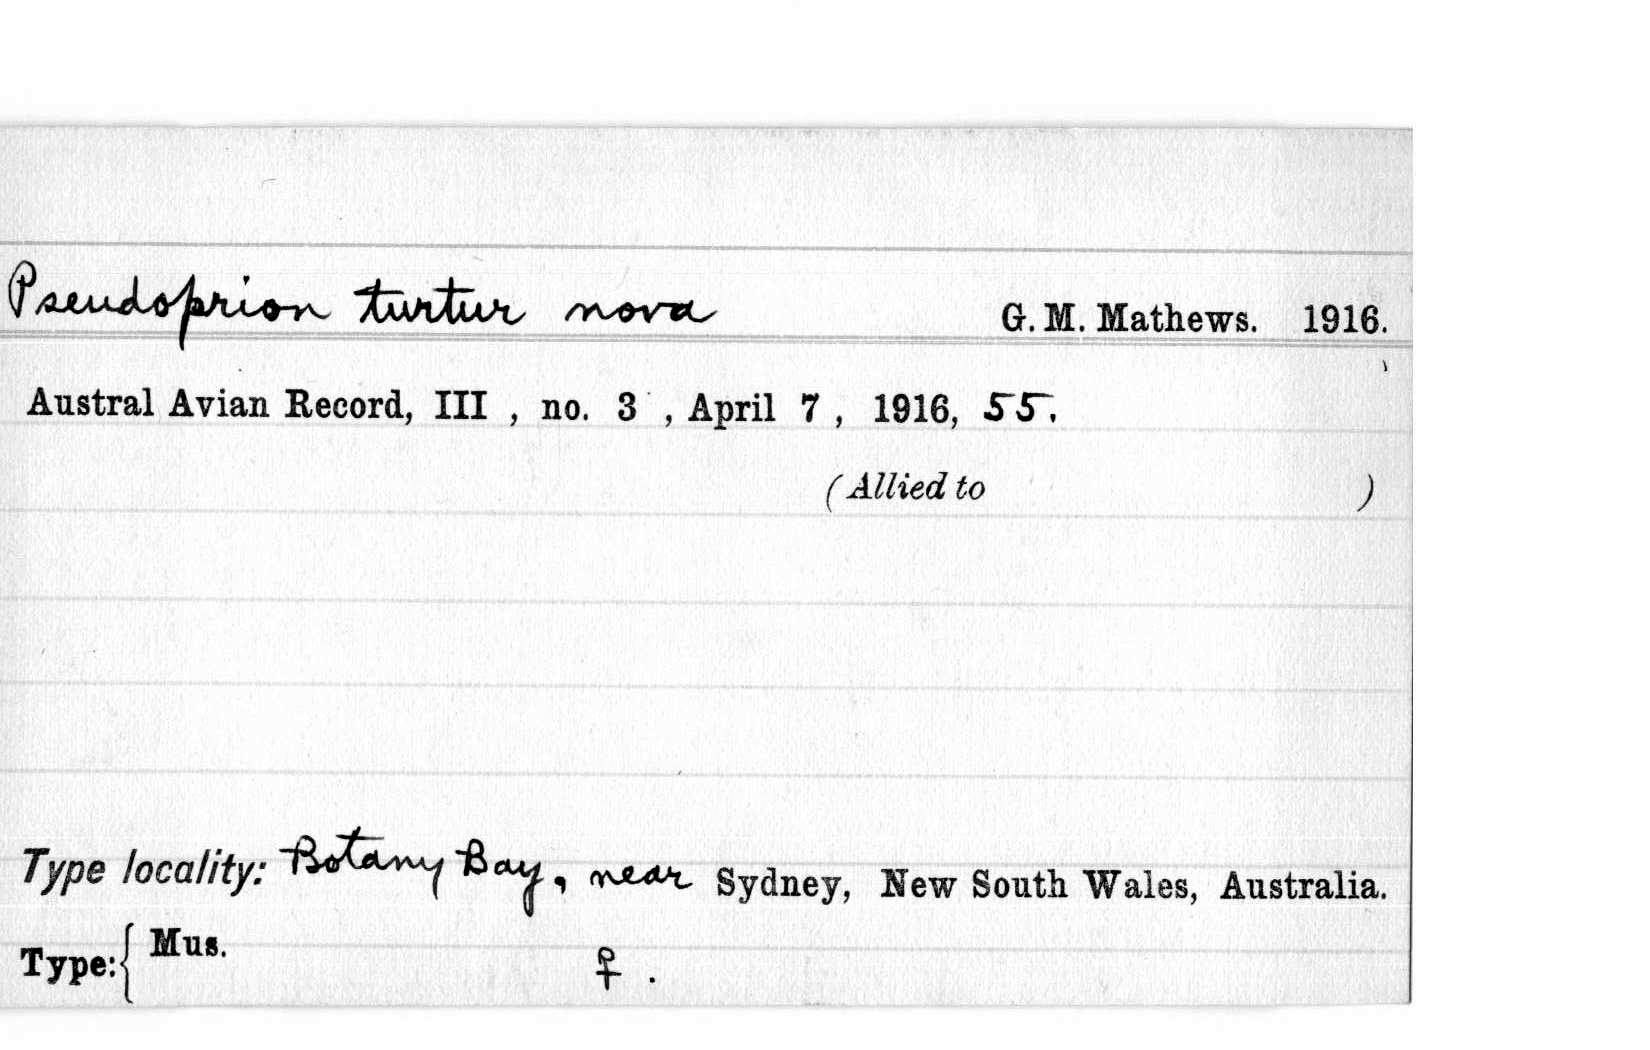 Pseudoprion turtur nova G. M. Mathews. 1916.
Austral Avian Record, III , no. 3 , April 7 , 1916, 55.
(Allied to )
Type locality: Botany Bay, near Sydney, New South Wales, Australia.
Type: { Mus. ♀ .